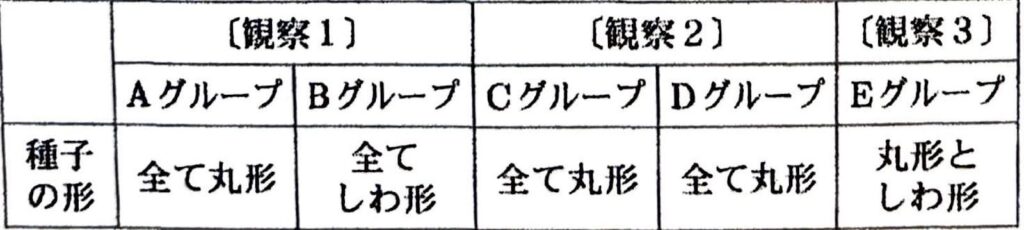 〔観察1〕 〔観察2〕 〔観察3〕
Aグループ Bグループ Cグループ Dグループ Eグループ
種子の形 全て丸形 全てしわ形 全て丸形 全て丸形 丸形としわ形